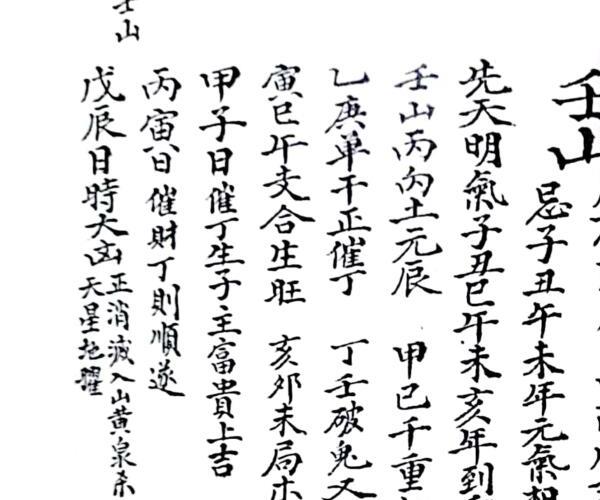 壬山
忌子丑午未年元氣
先天明氣子丑巳午未亥年到
壬山丙向土元辰 甲己千重
乙庚单干正催丁 丁壬破鬼又
寅巳午支合生旺 亥卯未局
甲子日催丁生子主富貴上吉
丙寅日催財丁則順遂
戊辰日時大凶 正消滅入山黄泉杀
天星地曜
壬山